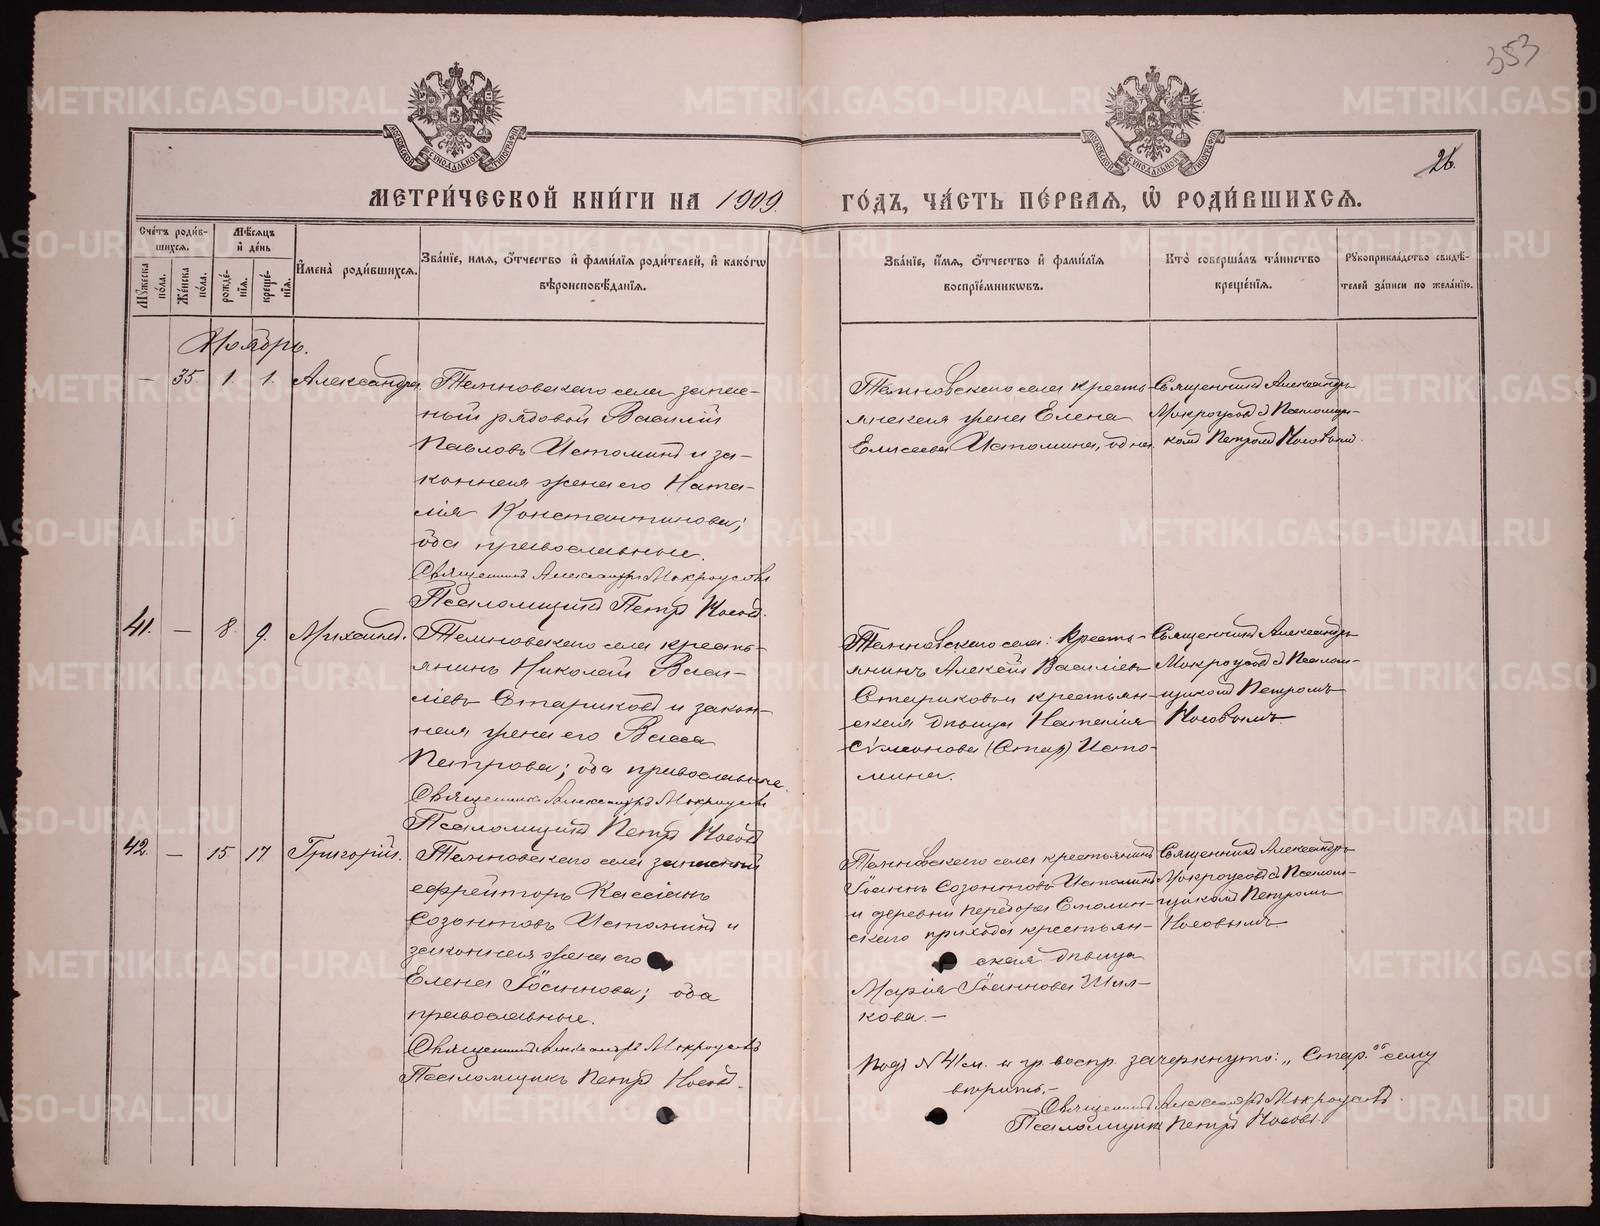 353
26.
МЕТРИ́ЧЕСКОЙ КНИ́ГИ НА 1909 ГО́ДЪ, ЧА́СТЬ ПЕ́РВАЯ, Ѡ РОДИ́ВШИХСЯ.
Сче́тъ роди́в-
шихся.
Мꙋ́жеска по́ла.
Же́нска по́ла.
Мѣ́сяцъ
и҆ де́нь
рожде́-
нїя.
креще́-
нїя.
И҆мена̀ роди́вшихся.
Зва́нїе, и҆мя, ѻ҆́тчество и҆ фами́лїя роди́телей, и҆ како́гѡ
вѣроисповѣ́данїя.
Зва́нїе, и҆́мя, ѻ҆́тчество и҆ фами́лїя
воспрїе́мникѡвъ.
Кто̀ соверша́лъ та́инство
креще́нїя.
Рꙋкоприкла́дство свидѣ́-
телей за́писи по жела́нїю.
Ноябрь.
— 35 1. 1. Александра.
Темновского села запас-
ный рядовой Василій
Павловъ Истоминъ и за-
конная жена его Ната-
лія Константинова;
оба православные.
Священникъ Александръ Мокроусовъ
Псаломщикъ Петръ Носовъ.
Темновского села кресть-
янская жена Елена
Елисеева Истомина, одна
Священникъ Александръ
Мокроусовъ съ Псаломщи-
комъ Петромъ Носовымъ.
41. — 8. 9. Михаилъ.
Темновского села кресть-
янинъ Николай Васи-
ліевъ Стариковъ и закон-
ная жена его Васса
Петрова; оба православные.
Священникъ Александръ Мокроусовъ
Псаломщикъ Петръ Носовъ
Темновского села: кресть-
янинъ Алексій Василіевъ
Стариковъ и крестьян-
ская дѣвица Наталія
Симеонова (Стар) Исто-
мина.
Священникъ Александръ
Мокроусовъ съ Псалом-
щикомъ Петромъ
Носовымъ.
42. — 15. 17 Григорій.
Темновского села запасный
ефрейторъ Кассіанъ
Созонтовъ Истоминъ и
законная жена его
Елена Іоаннова; оба
православные.
Священникъ Александръ Мокроусовъ
Псаломщикъ Петръ Носовъ.
Темновского села крестьянинъ
Іоаннъ Созонтовъ Истоминъ
и деревни Смолин-
ского прихода крестьян-
ская дѣвица
Марія Іоаннова Шил-
кова.—
Священникъ Александръ
Мокроусовъ съ Псалом-
щикомъ Петромъ
Носовымъ.
Подъ № 41 м. въ гр. воспр. зачеркнуто: „Стар.“ сему
вѣрить.—
Священникъ Александръ Мокроусовъ.
Псаломщикъ Петръ Носовъ.
METRIKI.GASO-URAL.RU